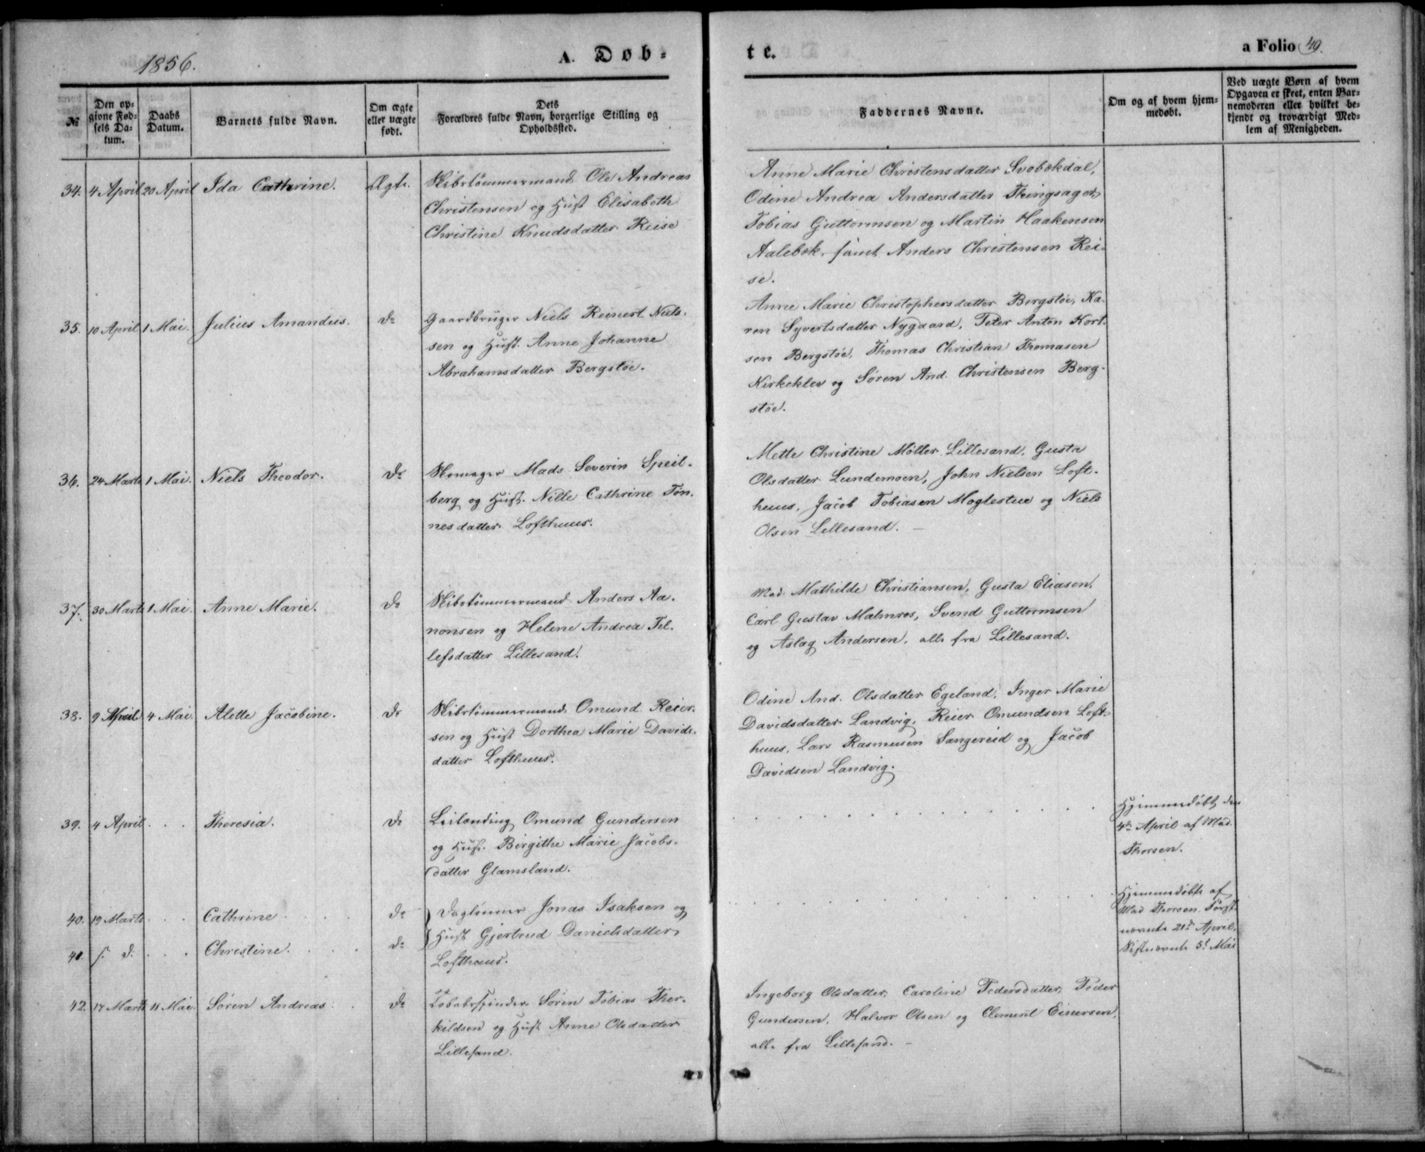 1856.
A. Døb-
te.
a Folio 40.
№
Den opgivne Fødsels Datum.
Daabs Datum.
Barnets fulde Navn.
Om ægte eller uægte født.
Dets Forældres fulde Navn, borgerlige Stilling og Opholdssted.
Faddernes Navne.
Om og af hvem hjemmedøbt.
Ved uægte Børn af hvem Opgaven er skeet, enten Barnemoderen eller hvilket bekjendt og troværdigt Medlem af Menigheden.
34. 4 April 20 April Ida Cathrine. Ægte.
Skibstømmermand Ole Andreas
Christensen og Hust Elisabeth
Christine Knudsdatter Reise
Anne Marie Christensdatter
Odine Andrea Andersdatter
Tobias Guttormsen og Martin Haakensen
Aalebek, samt Anders Christensen Rei-
se.
35. 10 April 1 Mai. Julius Amandus. do
Gaardbruger Niels Reinert Niels-
sen og Hust. Anne Johanne
Abrahamsdatter Bergstøe.
Anne Marie Christophersdatter Bergstøe, Ka-
ren Syvertsdatter Nygaard, Peter Anton Kort-
sen Bergstøe, Thomas Christian Thomasen
Kirkeklev og Søren And. Christensen Berg-
støe.
36. 24 Marts 1 Mai. Niels Theodor. do
Skomager Mads Severin Speil-
berg og Hust. Nille Cathrine Tøn-
nesdatter Lofthuus.
Mette Christine Møller Lillesand, Gusta
Olsdatter Lundemoen, John Nielsen Loft-
huus, Jacob Tobiasen Moglestue og Niels
Olsen Lillesand. –
37. 30 Marts 1 Mai. Anne Marie. do
Skibstømmermand Anders Aa-
nonsen og Helene Andrea Tel-
lefsdatter Lillesand.
Mad. Mathilde Christiansen, Gusta Eliasen,
Carl Gustav Malmros, Svend Guttormsen
og Aslag Andersen, alle fra Lillesand.
38. 9 April 4 Mai. Alette Jacobine. do
Skibstømmermand Omund Reier-
sen og Hust Dorthea Marie Davids-
datter Lofthuus.
Odine And. Olsdatter Egeland, Inger Marie
Davidsdatter Landvig, Reier Omundsen Loft-
huus, Lars Rasmusen Sangereid og Jacob
Davidsen Landvig.
39. 4 April . . . Theresia. do
Leilænding Omund Gundersen
og Hust. Birgithe Marie Jacobs-
datter Glamsland.
Hjemmedøbt den
4de April af Mad.
Thorsen.
40. 19 Marts . . . Cathrine do
41. s. d. . . . Christine. do
Daglønner Jonas Isaksen og
Hust Gjertrud Danielsdatter
Lofthuus.
Hjemmedøbte af
Mad Thorsen. Først-
nævnte 21de April,
Sidstnævnte 3d Mai
42. 17 Marts 11 Mai. Søren Andreas. do
Tobaksspinder Søren Tobias Ther-
kildsen og Hust Anne Olsdatter
Lillesand.
Ingeborg Olsdatter, Caroline Pedersdatter, Peder
Gundersen, Halvor Olsen og Clement Einersen,
alle fra Lillesand. –